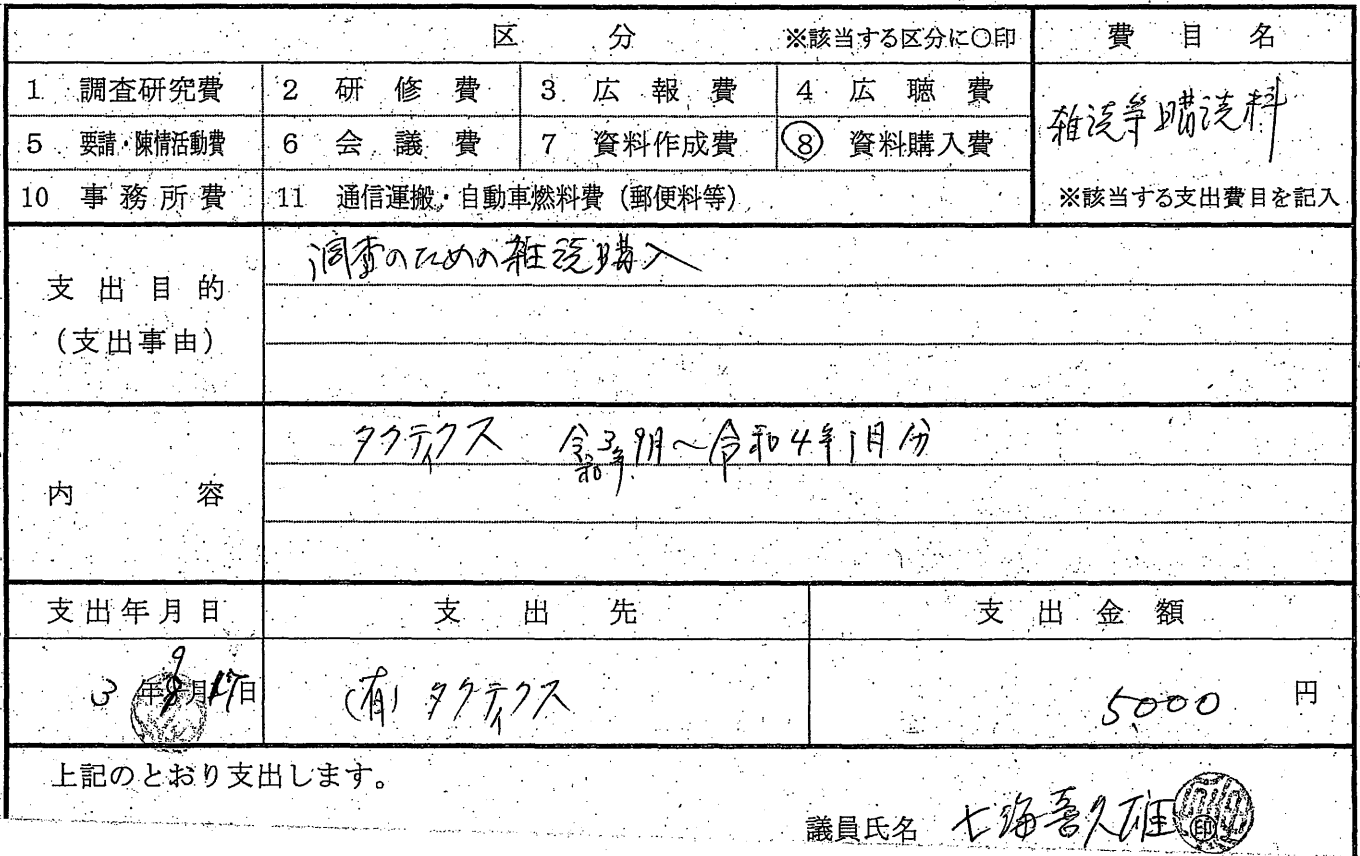 区 分 ※該当する区分に○印 費 目 名
1 調査研究費 2 研 修 費 3 広 報 費 4 広 聴 費
雑誌等購読料
5 要請・陳情活動費 6 会 議 費 7 資料作成費 ⑧ 資料購入費
10 事務所費 11 通信運搬・自動車燃料費（郵便料等） ※該当する支出費目を記入
調査のための雑誌購入
支出目的
（支出事由）
タクティクス 令和3年9月～令和4年1月分
内 容
支出年月日 支 出 先 支 出 金 額
9
3 年 月 日 (有) タクティクス 5000 円
上記のとおり支出します。
議員氏名 七海喜久雄 印